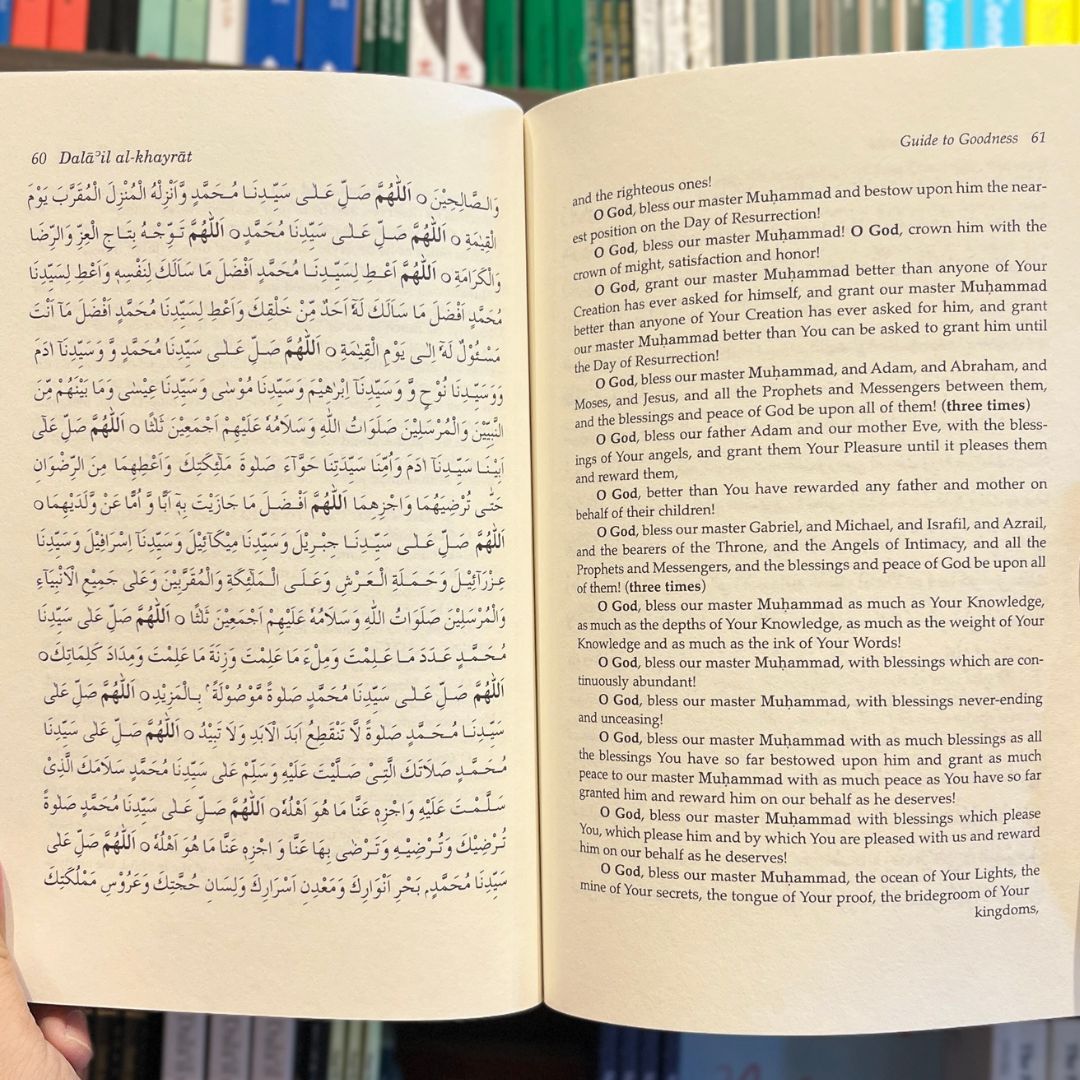 60 Dalāʾil al-khayrāt
وَالصَّالِحِيْنَ ○ اَللّٰهُمَّ صَلِّ عَلٰى سَيِّدِنَا مُحَمَّدٍ وَّاَنْزِلْهُ الْمُنْزِلَ الْمُقَرَّبَ يَوْمَ
الْقِيٰمَةِ ○ اَللّٰهُمَّ صَلِّ عَلٰى سَيِّدِنَا مُحَمَّدٍ ○ اَللّٰهُمَّ تَوِّجْهُ بِتَاجِ الْعِزِّ وَالرِّضَا
وَالْكَرَامَةِ ○ اَللّٰهُمَّ اَعْطِ لِسَيِّدِنَا مُحَمَّدٍ اَفْضَلَ مَا سَاَلَكَ لِنَفْسِهٖ وَاَعْطِ لِسَيِّدِنَا
مُحَمَّدٍ اَفْضَلَ مَا سَاَلَكَ لَهٗٓ اَحَدٌ مِّنْ خَلْقِكَ وَاَعْطِ لِسَيِّدِنَا مُحَمَّدٍ اَفْضَلَ مَآ اَنْتَ
مَسْئُوْلٌ لَهٗٓ اِلٰى يَوْمِ الْقِيٰمَةِ ○ اَللّٰهُمَّ صَلِّ عَلٰى سَيِّدِنَا مُحَمَّدٍ وَّ وَسَيِّدِنَآ اٰدَمَ
وَوَسَيِّدِنَا نُوْحٍ وَّ وَسَيِّدِنَآ اِبْرٰهِيْمَ وَسَيِّدِنَا مُوْسٰى وَسَيِّدِنَا عِيْسٰى وَمَا بَيْنَهُمْ مِّنَ
النَّبِيِّيْنَ وَالْمُرْسَلِيْنَ صَلَوَاتُ اللّٰهِ وَسَلَامُهٗ عَلَيْهِمْ اَجْمَعِيْنَ ثَلٰثًا ○ اَللّٰهُمَّ صَلِّ عَلٰى
اَبِيْنَا سَيِّدِنَآ اٰدَمَ وَاُمِّنَا سَيِّدَتِنَا حَوَّآءَ صَلٰوةَ مَلٰٓئِكَتِكَ وَاَعْطِهِمَا مِنَ الرِّضْوَانِ
حَتّٰى تُرْضِيَهُمَا وَاجْزِهِمَا اَللّٰهُمَّ اَفْضَلَ مَا جَازَيْتَ بِهٖٓ اَبًا وَّ اُمًّا عَنْ وَّلَدَيْهِمَا ○
اَللّٰهُمَّ صَلِّ عَلٰى سَيِّدِنَا جِبْرِيْلَ وَسَيِّدِنَا مِيْكَآئِيْلَ وَسَيِّدِنَآ اِسْرَافِيْلَ وَسَيِّدِنَا
عِزْرَآئِيْلَ وَحَمَلَةِ الْعَرْشِ وَعَلَى الْمَلٰٓئِكَةِ وَالْمُقَرَّبِيْنَ وَعَلٰى جَمِيْعِ الْاَنْبِيَآءِ
وَالْمُرْسَلِيْنَ صَلَوَاتُ اللّٰهِ وَسَلَامُهٗ عَلَيْهِمْ اَجْمَعِيْنَ ثَلٰثًا ○ اَللّٰهُمَّ صَلِّ عَلٰى سَيِّدِنَا
مُحَمَّدٍ عَدَدَ مَا عَلِمْتَ وَمِلْءَ مَا عَلِمْتَ وَزِنَةَ مَا عَلِمْتَ وَمِدَادَ كَلِمَاتِكَ ○
اَللّٰهُمَّ صَلِّ عَلٰى سَيِّدِنَا مُحَمَّدٍ صَلٰوةً مَّوْصُوْلَةً ۢ بِالْمَزِيْدِ ○ اَللّٰهُمَّ صَلِّ عَلٰى
سَيِّدِنَا مُحَمَّدٍ صَلٰوةً لَّا تَنْقَطِعُ اَبَدَ الْاَبَدِ وَلَا تَبِيْدُ ○ اَللّٰهُمَّ صَلِّ عَلٰى سَيِّدِنَا
مُحَمَّدٍ صَلَاتَكَ الَّتِيْ صَلَّيْتَ عَلَيْهِ وَسَلِّمْ عَلٰى سَيِّدِنَا مُحَمَّدٍ سَلَامَكَ الَّذِيْ
سَلَّمْتَ عَلَيْهِ وَاجْزِهِ عَنَّا مَا هُوَ اَهْلُهٗ ○ اَللّٰهُمَّ صَلِّ عَلٰى سَيِّدِنَا مُحَمَّدٍ صَلٰوةً
تُرْضِيْكَ وَتُرْضِيْهِ وَتَرْضٰى بِهَا عَنَّا وَ اجْزِهِ عَنَّا مَا هُوَ اَهْلُهٗ ○ اَللّٰهُمَّ صَلِّ عَلٰى
سَيِّدِنَا مُحَمَّدٍ، بَحْرِ اَنْوَارِكَ وَمَعْدِنِ اَسْرَارِكَ وَلِسَانِ حُجَّتِكَ وَعَرُوْسِ مَمْلُكَتِكَ
Guide to Goodness 61
and the righteous ones!
O God, bless our master Muḥammad and bestow upon him the near-
est position on the Day of Resurrection!
O God, bless our master Muḥammad! O God, crown him with the
crown of might, satisfaction and honor!
O God, grant our master Muḥammad better than anyone of Your
Creation has ever asked for himself, and grant our master Muḥammad
better than anyone of Your Creation has ever asked for him, and grant
our master Muḥammad better than You can be asked to grant him until
the Day of Resurrection!
O God, bless our master Muḥammad, and Adam, and Abraham, and
Moses, and Jesus, and all the Prophets and Messengers between them,
and the blessings and peace of God be upon all of them! (three times)
O God, bless our father Adam and our mother Eve, with the bless-
ings of Your angels, and grant them Your Pleasure until it pleases them
and reward them,
O God, better than You have rewarded any father and mother on
behalf of their children!
O God, bless our master Gabriel, and Michael, and Israfil, and Azrail,
and the bearers of the Throne, and the Angels of Intimacy, and all the
Prophets and Messengers, and the blessings and peace of God be upon all
of them! (three times)
O God, bless our master Muḥammad as much as Your Knowledge,
as much as the depths of Your Knowledge, as much as the weight of Your
Knowledge and as much as the ink of Your Words!
O God, bless our master Muḥammad, with blessings which are con-
tinuously abundant!
O God, bless our master Muḥammad, with blessings never-ending
and unceasing!
O God, bless our master Muḥammad with as much blessings as all
the blessings You have so far bestowed upon him and grant as much
peace to our master Muḥammad with as much peace as You have so far
granted him and reward him on our behalf as he deserves!
O God, bless our master Muḥammad with blessings which please
You, which please him and by which You are pleased with us and reward
him on our behalf as he deserves!
O God, bless our master Muḥammad, the ocean of Your Lights, the
mine of Your secrets, the tongue of Your proof, the bridegroom of Your
kingdoms,